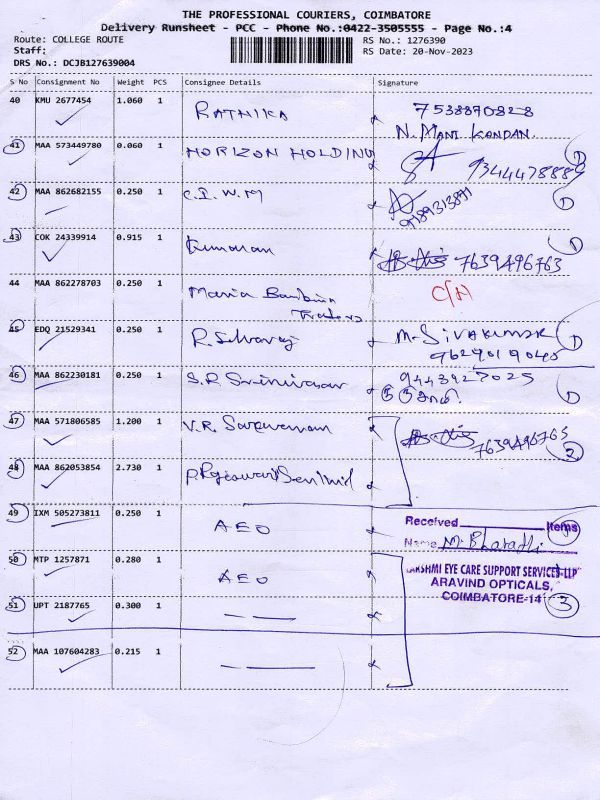 THE PROFESSIONAL COURIERS, COIMBATORE
Delivery Runsheet - PCC - Phone No.:0422-3505555 - Page No.:4
Route: COLLEGE ROUTE
RS No.: 1276390
Staff:
RS Date: 20-Nov-2023
DRS No.: DCJB127639004
S No Consignment No Weight PCS Consignee Details Signature
40 KMU 2677454 1.060 1 RATHIKA 7538870828
N. Mani Kandan.
41 MAA 573449780 0.060 1 HORIZON HOLDING 9344478889 1
42 MAA 862682155 0.250 1 C.I.W.M 9789313891 1
43 COK 24339914 0.915 1 Kumaran 7639496763 1
44 MAA 862278703 0.250 1 Maria
Traders
45 EDQ 21529341 0.250 1 R. Selvaraj M-SIVAKUMAR 1
9629019045
46 MAA 862230181 0.250 1 S.R. Srinivasan 9443927025 1
47 MAA 571806585 1.200 1 V.R. Saravanan 7639496763 2
48 MAA 862053854 2.730 1
49 IXM 505273811 0.250 1 AEO
Received Items
Name M. Bharathi
50 MTP 1257871 0.280 1 AEO
LAKSHMI EYE CARE SUPPORT SERVICES-LLP
ARAVIND OPTICALS,
COIMBATORE-14 3
51 UPT 2187765 0.300 1
52 MAA 107604283 0.215 1